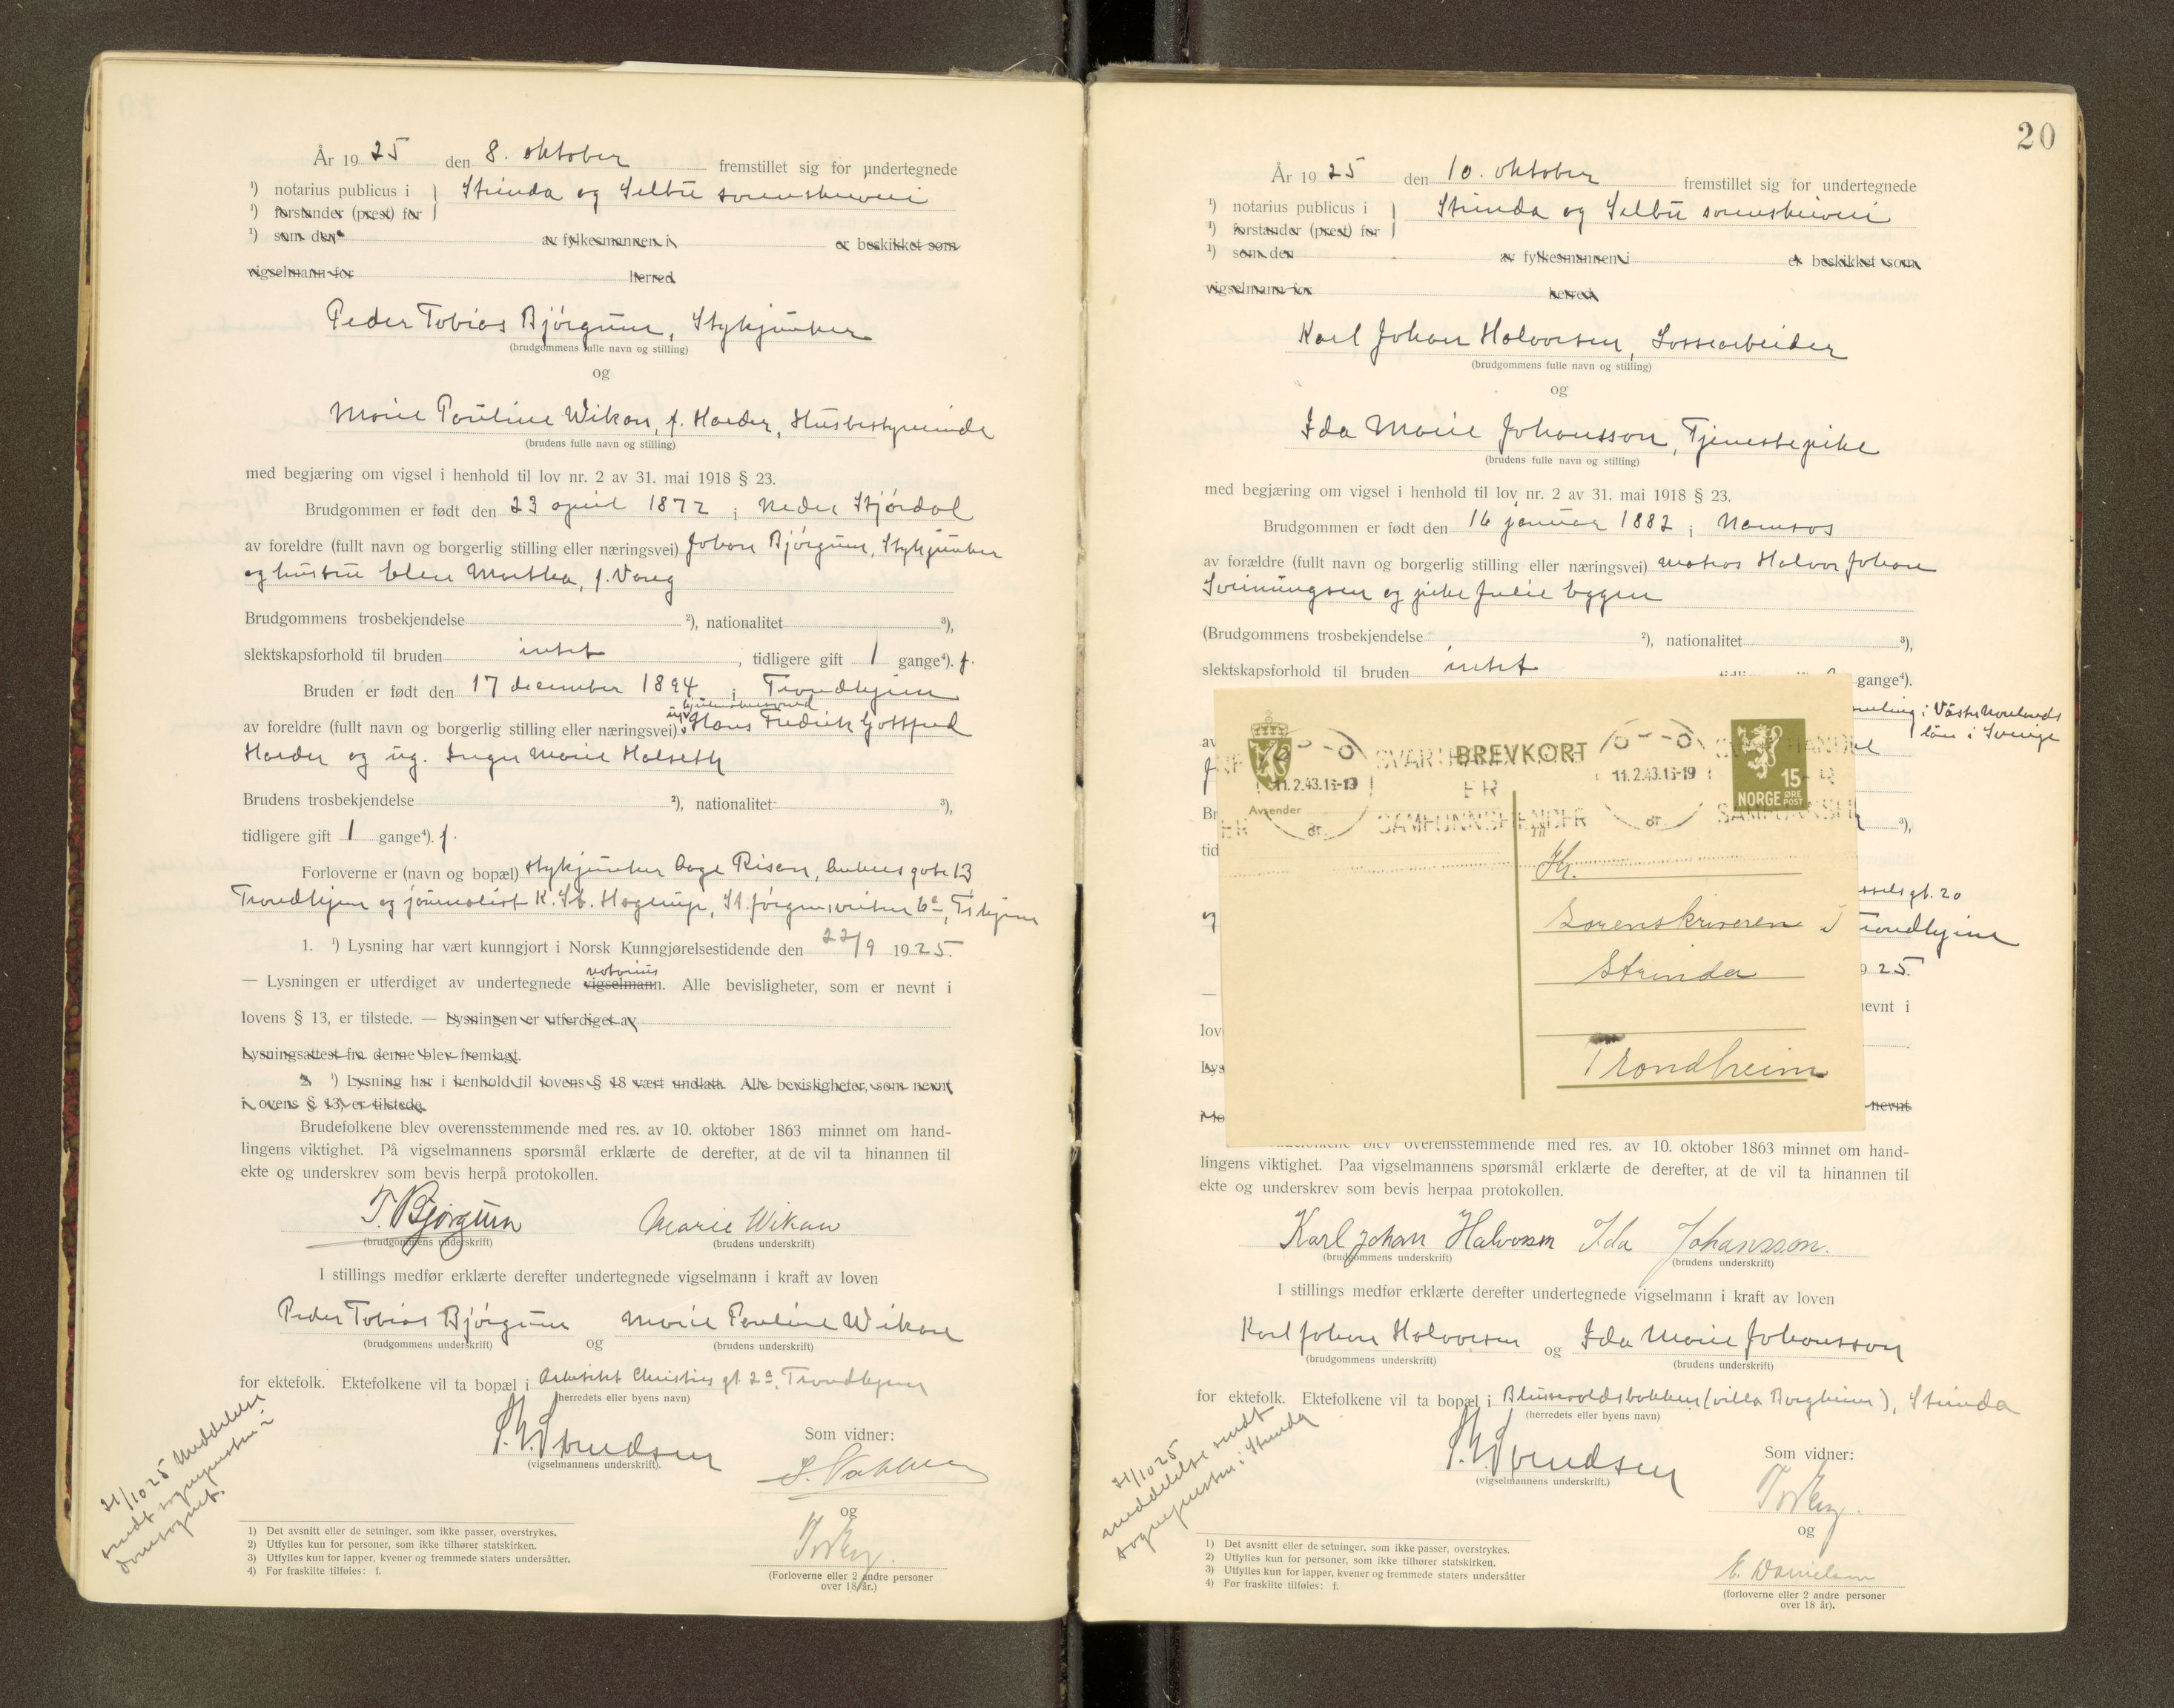 År 1925 den 8. oktober fremstillet sig for undertegnede
1) notarius publicus i } Strinda og Selbu sorenskriveri
1) forstander (prest) for
1) som den av fylkesmannen i er beskikket som
vigselmann for herred
Peder Tobias Bjørgum, Stykjunker
(brudgommens fulle navn og stilling)
og
Marie Pauline Wikan, f. Harder, Husbestyrerinde
(brudens fulle navn og stilling)
med begjæring om vigsel i henhold til lov nr. 2 av 31. mai 1918 § 23.
Brudgommen er født den 23 april 1872 i Nedre Stjørdal
av foreldre (fullt navn og borgerlig stilling eller næringsvei) Johan Bjørgum, Stykjunker
og hustru Elen Martha, f. Vang
Brudgommens trosbekjendelse 2), nationalitet 3),
slektskapsforhold til bruden intet, tidligere gift 1 gange4). f.
Bruden er født den 17 december 1894 i Trondhjem
av foreldre (fullt navn og borgerlig stilling eller næringsvei) Hans Fredrik Gottfred
Harder og ug. Inger Marie Halseth
Brudens trosbekjendelse 2), nationalitet 3),
tidligere gift 1 gange4). f.
Forloverne er (navn og bopæl) stykjunker Aage Risan, gate 13
Trondhjem og journalist K. Hagerup, St. Jørgensveiten 6a, T.hjem
1. 1) Lysning har vært kunngjort i Norsk Kunngjørelsestidende den 22/9 1925.
— Lysningen er utferdiget av undertegnede vigselmann. notarius Alle bevisligheter, som er nevnt i
lovens § 13, er tilstede. — Lysningen er utferdiget av
Lysningsattest fra denne blev fremlagt.
2 1) Lysning har i henhold til lovens § 18 vært undlatt. Alle bevisligheter, som nevnt
i ovens § 13, er tilstede.
Brudefolkene blev overensstemmende med res. av 10. oktober 1863 minnet om hand-
lingens viktighet. På vigselmannens spørsmål erklærte de derefter, at de vil ta hinannen til
ekte og underskrev som bevis herpå protokollen.
T. Bjørgum Marie Wikan
(brudgommens underskrift) (brudens underskrift)
I stillings medfør erklærte derefter undertegnede vigselmann i kraft av loven
Peder Tobias Bjørgum og Marie Pauline Wikan
(brudgommens underskrift) (brudens underskrift)
for ektefolk. Ektefolkene vil ta bopæl i Arkitekt Christies gt 2a, Trondhjem
(herredets eller byens navn)
Svendsen
(vigselmannens underskrift).
Som vidner:
og
(Forloverne eller 2 andre personer
over 18 år.)
21/10 25 Meddelelse
sendt sognepresten i
Domsognet.
1) Det avsnitt eller de setninger, som ikke passer, overstrykes.
2) Utfylles kun for personer, som ikke tilhører statskirken.
3) Utfylles kun for lapper, kvener og fremmede staters undersåtter.
4) For fraskilte tilføies: f.
20
År 1925 den 10. oktober fremstillet sig for undertegnede
1) notarius publicus i } Strinda og Selbu sorenskriveri
1) forstander (prest) for
1) som den av fylkesmannen i er beskikket som
vigselmann for herred
Karl Johan Halvorsen, Lossearbeider
(brudgommens fulle navn og stilling)
og
Ida Marie Johansson, Tjenestepike
(brudens fulle navn og stilling)
med begjæring om vigsel i henhold til lov nr. 2 av 31. mai 1918 § 23.
Brudgommen er født den 16 januar 1882 i Namsos
av forældre (fullt navn og borgerlig stilling eller næringsvei) matros Halvor Johan
Svenningsen og pike Julie Eggen
(Brudgommens trosbekjendelse 2), nationalitet 3),
slektskapsforhold til bruden intet
gange4).
i Västernorrlands
län i Sverige
av
Br 3),
tid
gt. 20
og Trondhjem
25.
nevnt i
lov
Lys
nevnt
BREVKORT
11.2.43.15-19
SVARTHANDLER
ER
SAMFUNNSFIENDER
11.2.43.15-19
15 ØRE
NORGE POST
Avsender
Til
Hr.
Sorenskriveren i
Strinda
Trondheim
overensstemmende med res. av 10. oktober 1863 minnet om hand-
lingens viktighet. Paa vigselmannens spørsmål erklærte de derefter, at de vil ta hinannen til
ekte og underskrev som bevis herpaa protokollen.
Karl Johan Halvorsen Ida Johansson.
(brudgommens underskrift) (brudens underskrift)
I stillings medfør erklærte derefter undertegnede vigselmann i kraft av loven
Karl Johan Halvorsen og Ida Marie Johansson
(brudgommens underskrift) (brudens underskrift)
for ektefolk. Ektefolkene vil ta bopæl i Blussevoldsbakken (villa Borgheim), Strinda
(herredets eller byens navn)
Svendsen
(vigselmannens underskrift.)
Som vidner:
og
E. Danielsen
(forloverne eller 2 andre personer
over 18 år).
21/10 25
meddelelse sendt
sognepresten i Strinda
1) Det avsnitt eller de setninger, som ikke passer, overstrykes.
2) Utfylles kun for personer, som ikke tilhører statskirken.
3) Utfylles kun for lapper, kvener og fremmede staters undersåtter
4) For fraskilte tilføies: f.